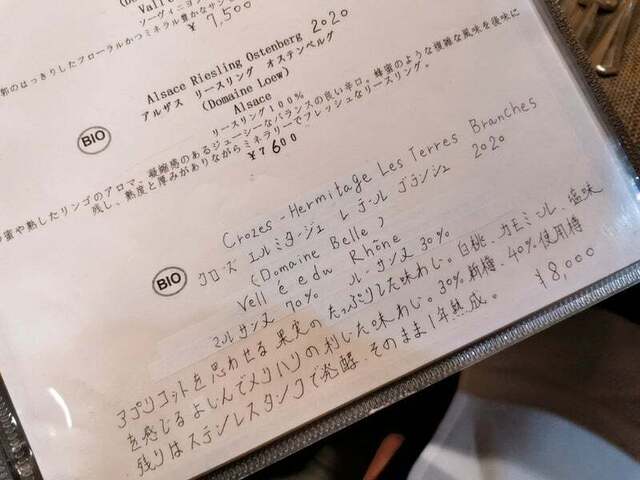 ソーヴィニヨ
￥7,500
郭のはっきりしたフローラルかつミネラル豊かなサン
Alsace Riesling Ostenberg 2020
アルザス リースリング オステンベルグ
(Domaine Loew)
Alsace
BIO
リースリング100%
蜜や熟したリンゴのアロマ。凝縮感のあるジューシーなバランスの良い辛口。蜂蜜のような複雑な風味を後味に
残し、熟度と厚みがありながらミネラリーでフレッシュなリースリング。
￥7600
Crozes-Hermitage Les Terres Branches
クローズ エルミタージュ レ テール ブランシュ 2020
(Domaine Belle)
BIO
Vell e edu Rhône
マルサンヌ 70% ルーサンヌ 30%
アプリコットを思わせる果実のたっぷりした味わい。白桃、カモミール、塩味
を感じるよしんでメリハリの利いた味わい。30%新樽、40%使用樽
残りはステンレスタンクで発酵、そのまま1年熟成。
￥8,000